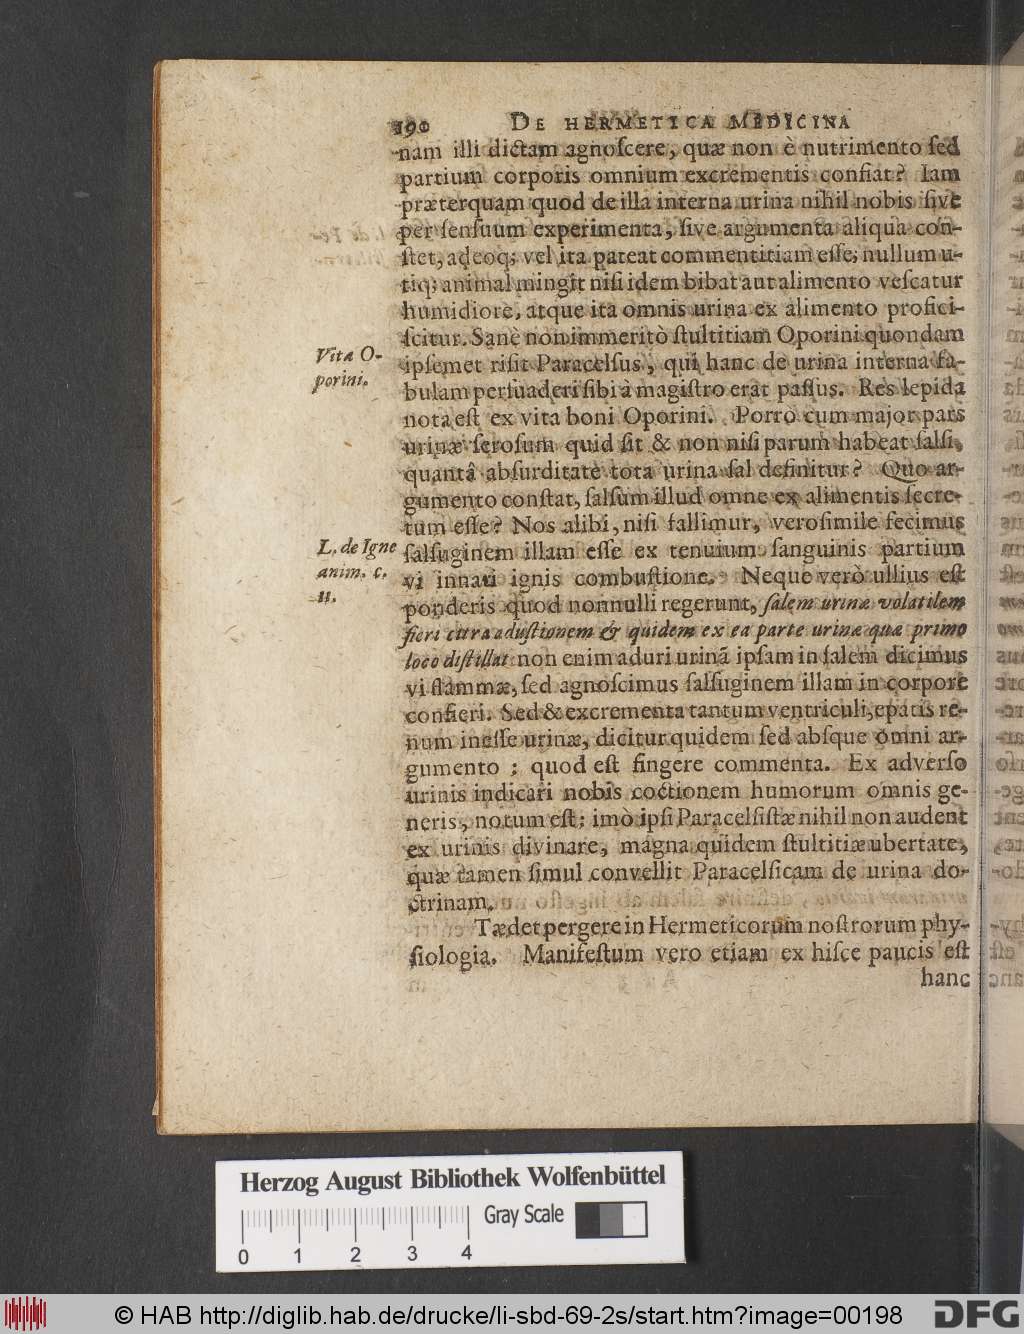 190 DE HERMETICA MEDICINA
nam illi dictam agnoſcere, quæ non è nutrimento ſed
partium corporis omnium excrementis confiat? Iam
præterquam quod de illa interna urina nihil nobis ſive
per ſenſuum experimenta, ſive argumenta aliqua con-
ſtet, adeoq; vel ita pateat commentitiam eſſe; nullum u-
tiq; animal mingit niſi idem bibat aut alimento veſcatur
humidiore, atque ita omnis urina ex alimento profici-
ſcitur. Sanè non immeritò ſtultitiam Oporini quondam
Vita O-
porini.
ipſemet riſit Paracelſus, qui hanc de urina interna fa-
bulam perſuaderi ſibi à magiſtro erat paſſus. Res lepida
nota eſt ex vita boni Oporini. Porro cum major pars
urinæ ſeroſum quid ſit & non niſi parum habeat ſalſi,
quantâ abſurditate tota urina ſal definitur? Quo ar-
gumento conſtat, ſalſum illud omne ex alimentis ſecre-
tum eſſe? Nos alibi, niſi fallimur, veroſimile fecimus
L. de Igne
anim. c.
11.
ſalſuginem illam eſſe ex tenuium ſanguinis partium
vi innati ignis combuſtione. Neque verò ullius eſt
ponderis quod nonnulli regerunt, ſalem urinæ volatilem
fieri citra aduſtionem & quidem ex ea parte urinæ quæ primo
loco diſtillat: non enim aduri urinã ipſam in ſalem dicimus
vi flammæ, ſed agnoſcimus ſalſuginem illam in corpore
confieri. Sed & excrementa tantum ventriculi, epatis re-
num ineſſe urinæ, dicitur quidem ſed abſque omni ar-
gumento; quod eſt fingere commenta. Ex adverſo
urinis indicari nobis coctionem humorum omnis ge-
neris, notum eſt: imò ipſi Paracelſiſtæ nihil non audent
ex urinis divinare, magna quidem ſtultitiæ ubertate,
quæ tamen ſimul convellit Paracelſicam de urina do-
ctrinam.
Tædet pergere in Hermeticorum noſtrorum phy-
ſiologia. Manifeſtum vero etiam ex hiſce paucis eſt
hanc
Herzog August Bibliothek Wolfenbüttel
Gray Scale
0 1 2 3 4
© HAB http://diglib.hab.de/drucke/li-sbd-69-2s/start.htm?image=00198
DFG